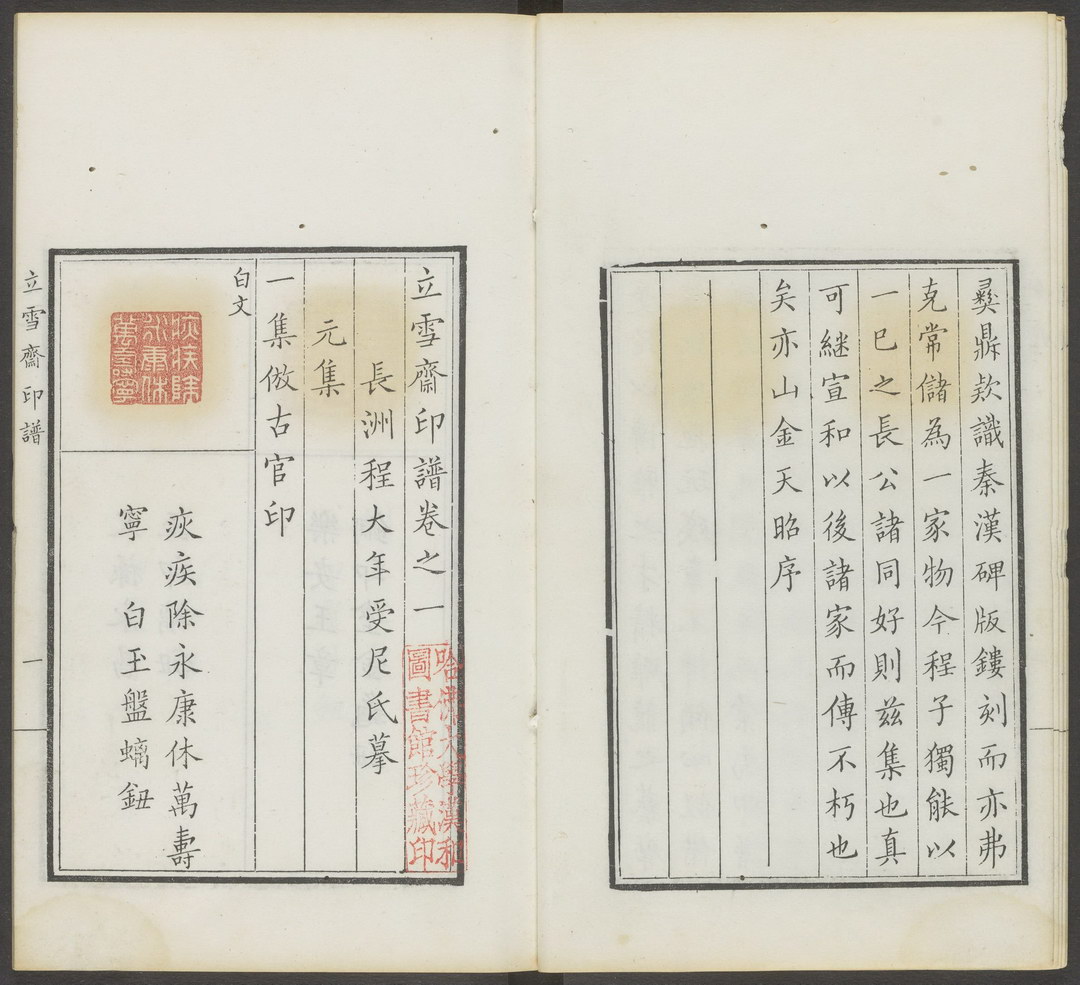 彜鼎欵識秦漢碑版鏤刻而亦弗
克常儲為一家物今程子獨能以
一已之長公諸同好則茲集也真
可継宣和以後諸家而傳不朽也
矣亦山金天昭序
立雪齋印譜卷之一
長洲程大年受尼氏摹
哈佛大學漢和
圖書館珍藏印
元集
一集倣古官印
白文
疢疾除
永康休
萬壽寧
疢疾除永康休萬壽
寧 白玉盤螭鈕
立雪齋印譜
一